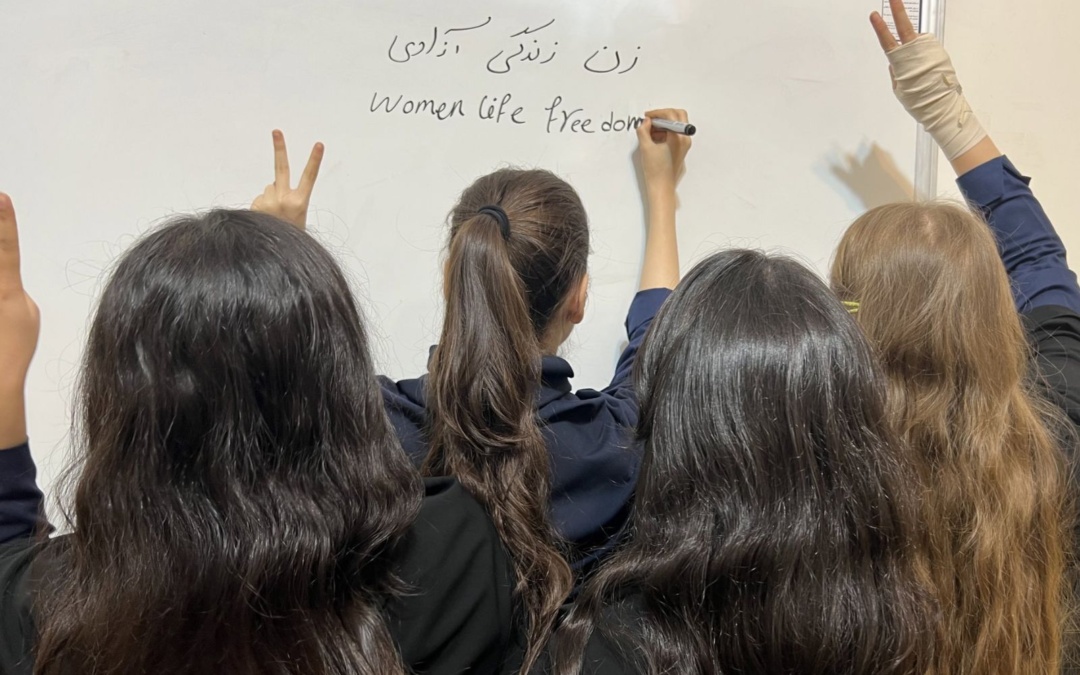 زن زندگی آزادی
Women life freedom